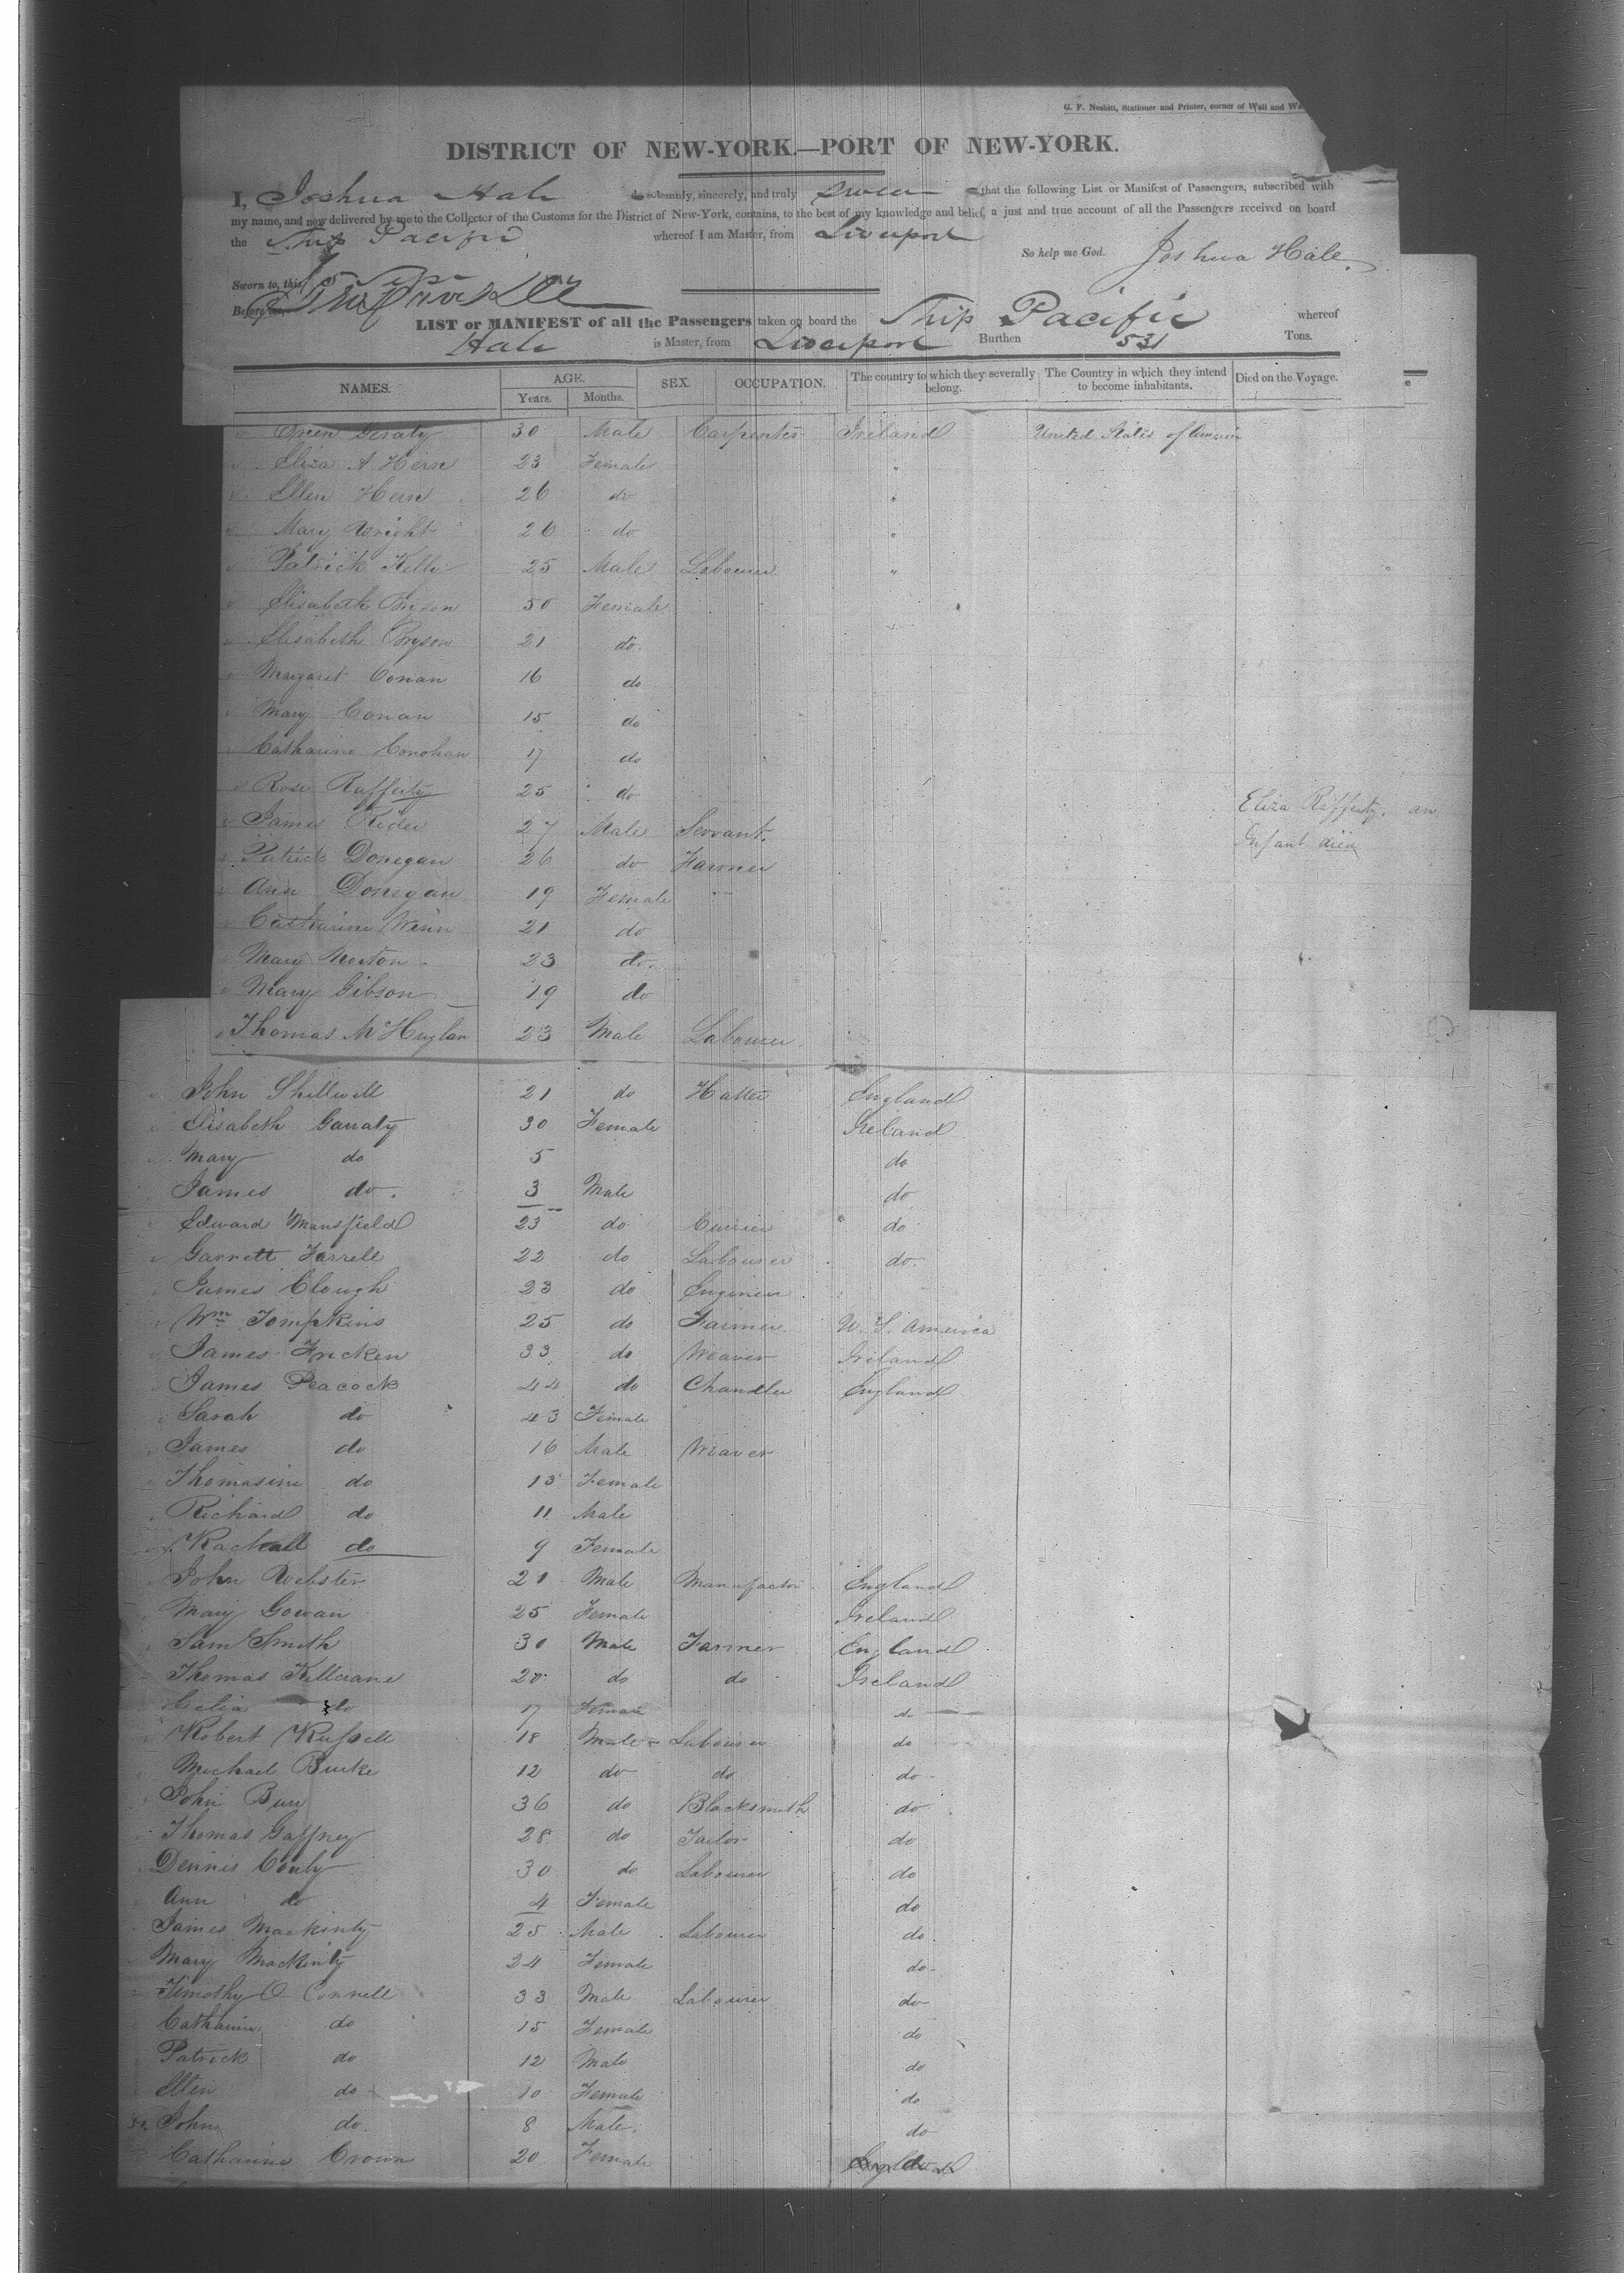 G. F. Nesbitt, Stationer and Printer, corner of Wall and
DISTRICT OF NEW-YORK.—PORT OF NEW-YORK.
I, Joshua Hale do solemnly, sincerely, and truly swear that the following List or Manifest of Passengers, subscribed with
my name, and now delivered by me to the Collector of the Customs for the District of New-York, contains, to the best of my knowledge and belief, a just and true account of all the Passengers received on board
the Ship Pacific whereof I am Master, from Liverpool
So help me God. Joshua Hale.
Sworn to, this
Before me,
LIST or MANIFEST of all the Passengers taken on board the Ship Pacific whereof
Hale is Master, from Liverpool Burthen 531 Tons.
NAMES. AGE. Years. Months. SEX. OCCUPATION. The country to which they severally belong. The Country in which they intend to become inhabitants. Died on the Voyage.
Geraty 30 Male Carpenter Ireland United States of America
Eliza A Hern 23 Female "
Ellen Hern 26 do "
Mary Wright 26 do "
Patrick Kelly 25 Male Labourer "
Elisabeth 50 Female
Elisabeth Bryson 21 do
Margaret Conan 16 do
Mary Conan 15 do
Catharine Conohan 17 do
Rose Rafferty 25 do Eliza Rafferty, an
James Rider 27 Male Servant. Infant died
Patrick Donegan 26 do Farmer
Ann Donegan 19 Female
Catharine Winn 21 do
Mary 23 do.
Mary Gibson 19 do
Thomas 23 Male Labourer
John 21 do Hatter England
Elisabeth Garraty 30 Female Ireland
Mary do 5 do
James do. 3 Male do
Edward Mansfield 23 do Currier do
Garrett Farrell 22 do Labourer do.
James Clough 23 do Engineer
Wm Tompkins 25 do Farmer U. S. America
James 33 do Weaver Ireland
James Peacock 44 do Chandler England
Sarah do 43 Female
James do 16 Male Weaver
Thomasine do 13 Female
Richard do 11 Male
do 9 Female
John Webster 21 Male England
Mary Gowan 25 Female Ireland
Saml Smith 30 Male Farmer England
Thomas Killcrane 20 do do Ireland
Celia do 17 Female do
Robert Russell 18 Male Labourer do
Michael Burke 12 do do do
John 36 do Blacksmith do
Thomas Gaffney 28 do Tailor do
Dennis 30 do Labourer do
Ann do 4 Female do
James Mackinty 25 Male Labourer do
Mary Mackinty 24 Female do
Timothy O Connell 33 Male Labourer do
Catharine do 15 Female do
Patrick do 12 Male do
Ellen do 10 Female do
John do 8 Male do
Catharine Crown 20 Female do